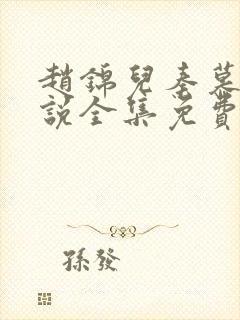 趙錦兒秦慕
說全集免費
孫發